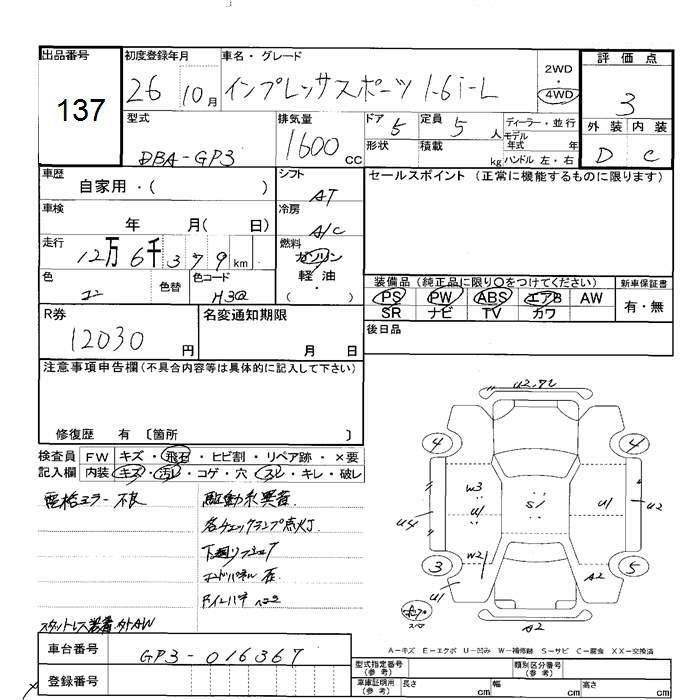 出品番号
137
初度登録年月
26 10月
車名・グレード
インプレッサスポーツ 1.6i-L
2WD
4WD
評価点
3
外装 内装
D C
型式
DBA-GP3
排気量
1600 CC
ドア 5
定員 5 人
ディーラー・並行
モデル
年式 年
形状
積載 kg
ハンドル 左・右
車歴
自家用・( )
シフト
AT
セールスポイント (正常に機能するものに限ります)
車検
年 月( 日)
冷房
A/C
走行
12万6千379km
燃料
ガソリン
軽油
( )
色
色替
色コード
H3Q
装備品(純正品に限り○をつけてください)
PS PW ABS エアB AW
SR ナビ TV カワ
新車保証書
有・無
R券
12030 円
名変通知期限
月 日
後日品
注意事項申告欄(不具合内容等は具体的に記入して下さい)
修復歴 有 〔箇所 〕
検査員
記入欄
FW キズ・飛石・ヒビ割・リペア跡・×要
内装 キズ・汚レ・コゲ・穴・スレ・キレ・破レ
電格ミラー 不良
駆動系異音
各チェックランプ点灯
スタットレス装着 外AW
車台番号
GP3-016367
登録番号
4 4
W3
U1
S1
U1
U2
U4
3
W2
5
U1
A2
A2
A-キズ E-エクボ U-凹み W-補修跡 S-サビ C-腐食 XX-交換済
型式指定番号
(参考)
類別区分番号
(参考)
車庫証明用
(参考)
長さ cm
幅 cm
高さ cm